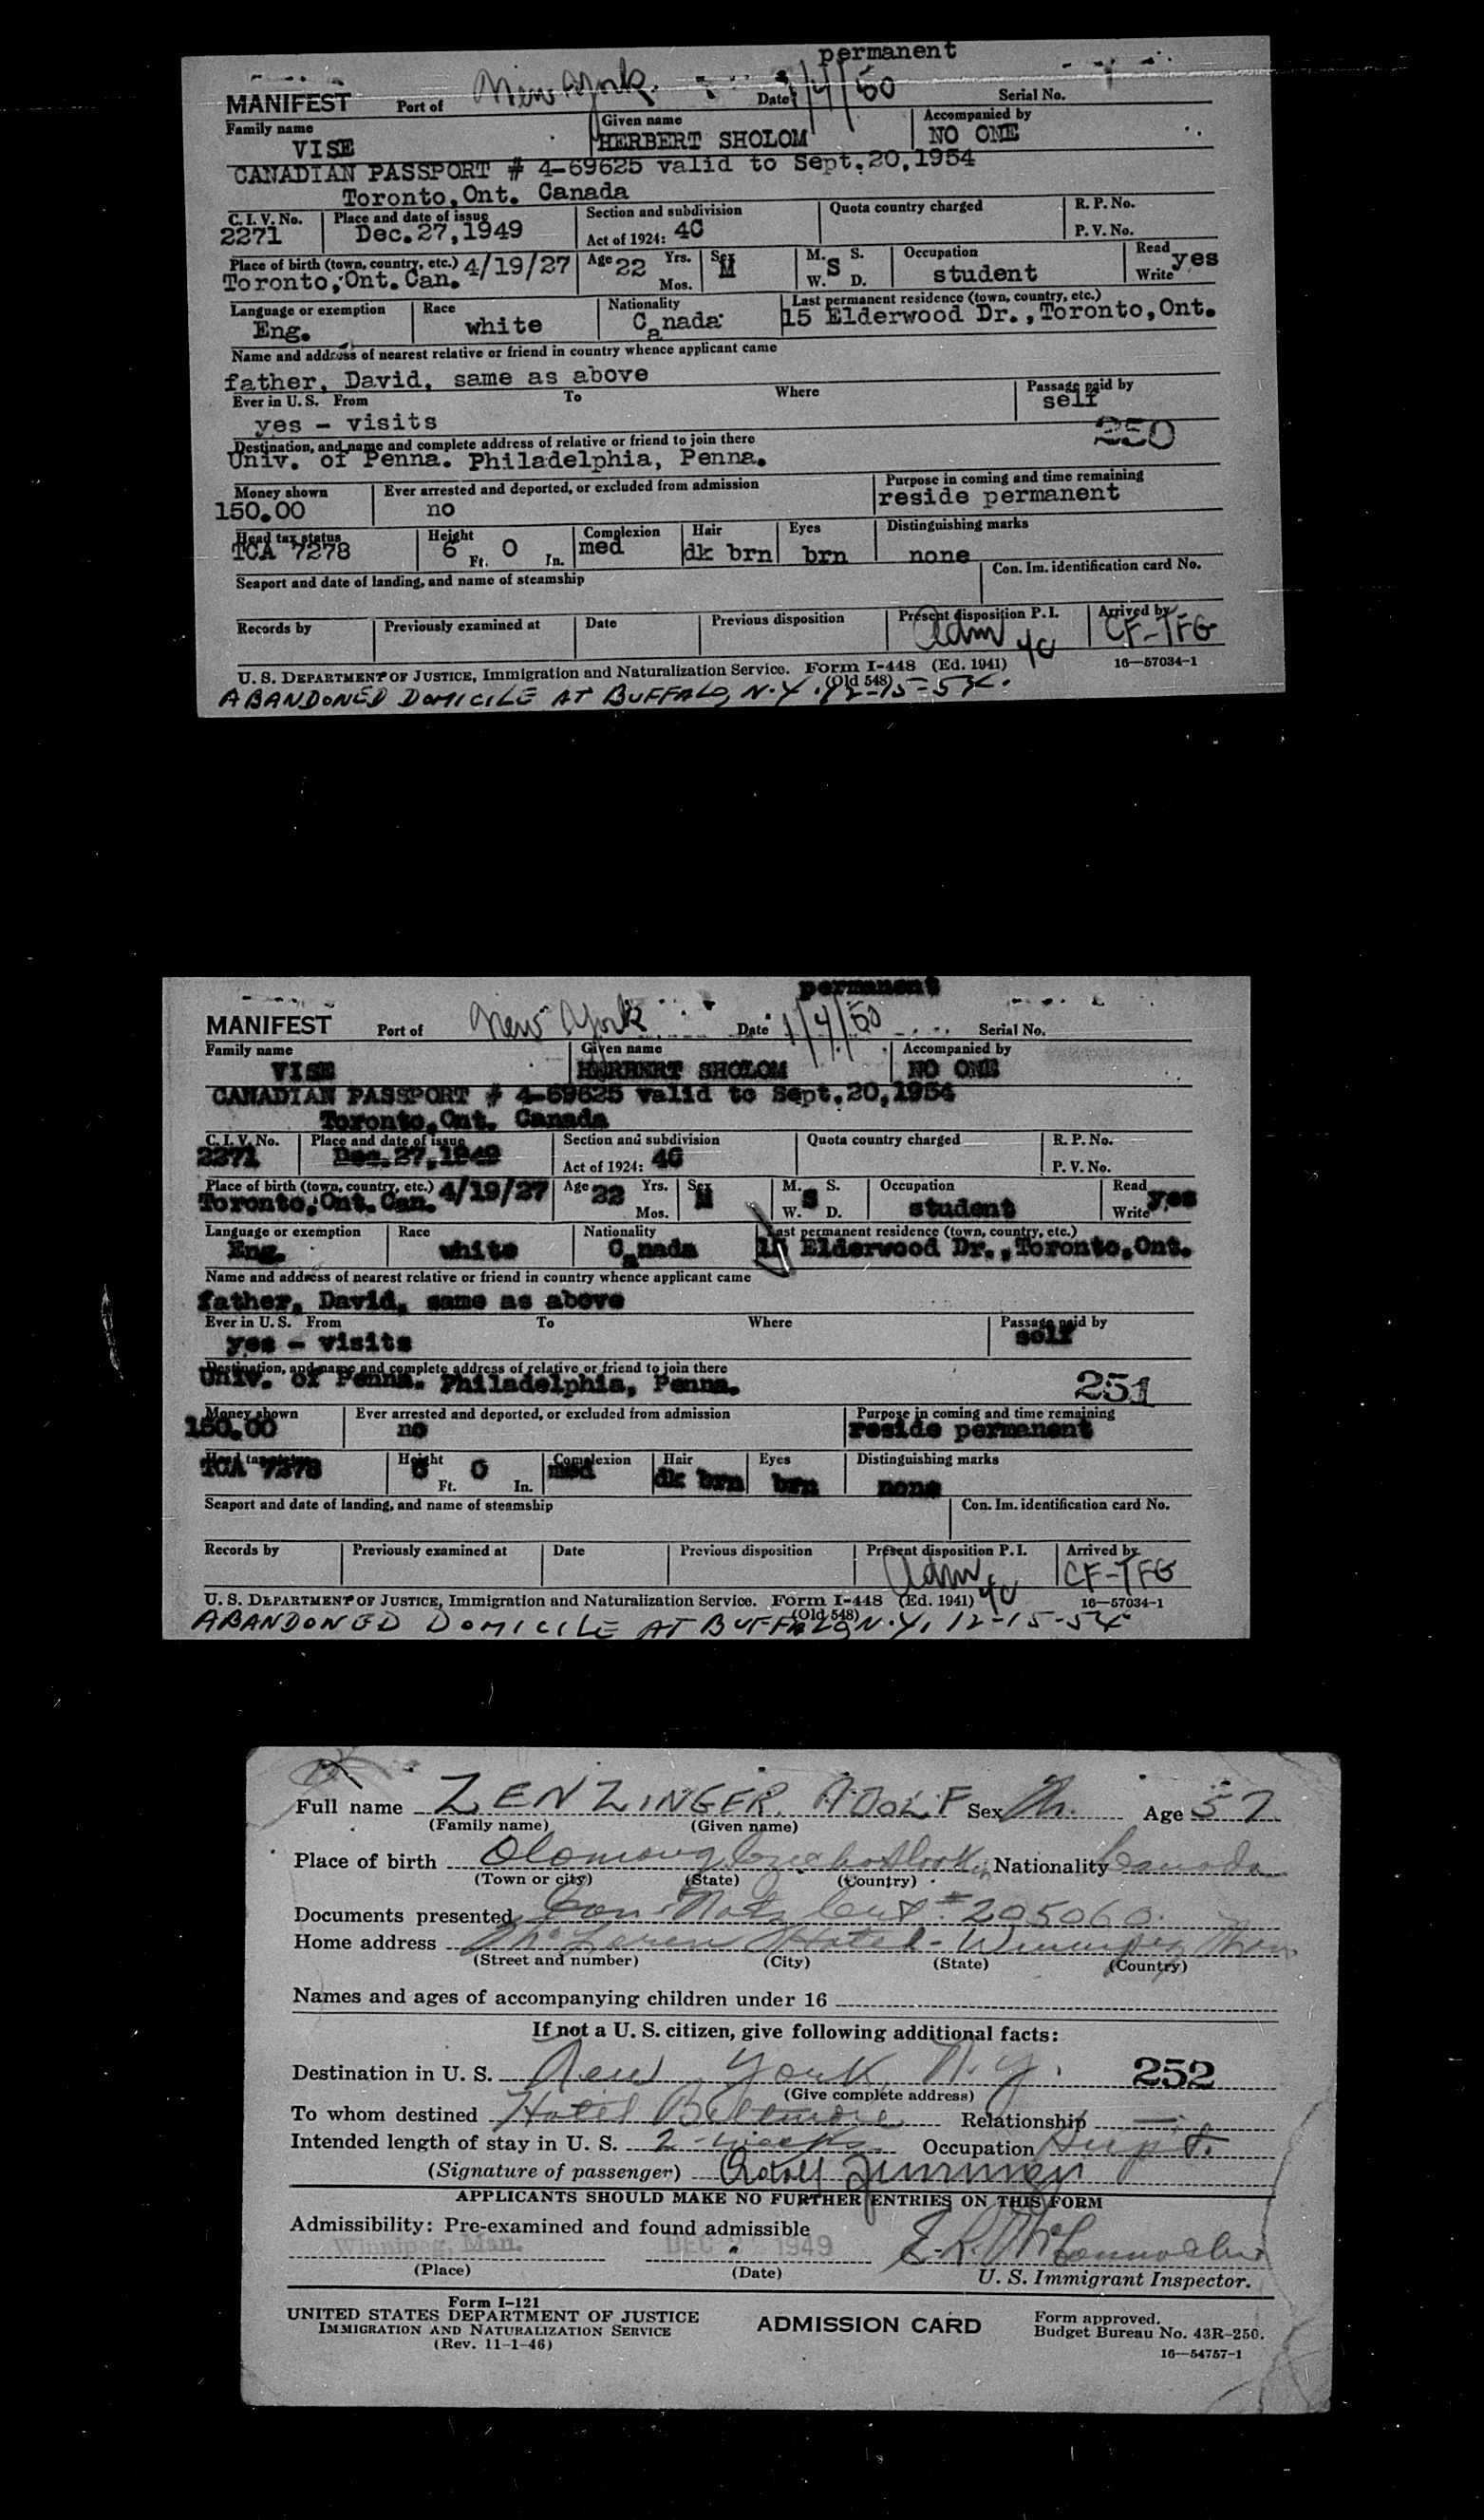 permanent
MANIFEST Port of New York. Date 1/4/50 Serial No.
Family name Given name Accompanied by
VISE HERBERT SHOLOM NO ONE
CANADIAN PASSPORT # 4-69625 valid to Sept.20,1954
Toronto,Ont. Canada
C. I. V. No. Place and date of issue Section and subdivision Quota country charged R. P. No.
2271 Dec.27,1949 Act of 1924: 4C P. V. No.
Place of birth (town, country, etc.) 4/19/27 Age 22 Yrs. Sex M. S. Occupation Read yes
Toronto,Ont.Can. Mos. M W. S D. student Write
Language or exemption Race Nationality Last permanent residence (town, country, etc.)
Eng. white Canada 15 Elderwood Dr.,Toronto,Ont.
Name and address of nearest relative or friend in country whence applicant came
father, David, same as above
Ever in U. S. From To Where Passage paid by
yes - visits self
Destination, and name and complete address of relative or friend to join there 250
Univ. of Penna. Philadelphia, Penna.
Money shown Ever arrested and deported, or excluded from admission Purpose in coming and time remaining
150.00 no reside permanent
Head tax status Height Complexion Hair Eyes Distinguishing marks
TCA 7278 6 Ft. 0 In. med dk brn brn none
Seaport and date of landing, and name of steamship Con. Im. identification card No.
Records by Previously examined at Date Previous disposition Present disposition P. I. Arrived by
Adm 4C CF-TFG
U. S. DEPARTMENT OF JUSTICE, Immigration and Naturalization Service. Form I-448 (Ed. 1941) 16—57034-1
(Old 548)
ABANDONED DOMICILE AT BUFFALO, N.Y. 12-15-54.
permanent
MANIFEST Port of New York Date 1/4/50 Serial No.
Family name Given name Accompanied by
VISE HERBERT SHOLOM NO ONE
CANADIAN PASSPORT # 4-69625 valid to Sept.20,1954
Toronto,Ont. Canada
C. I. V. No. Place and date of issue Section and subdivision Quota country charged R. P. No.
2271 Dec.27,1949 Act of 1924: 4C P. V. No.
Place of birth (town, country, etc.) 4/19/27 Age 22 Yrs. Sex M. S. Occupation Read yes
Toronto,Ont.Can. Mos. M W. S D. student Write
Language or exemption Race Nationality Last permanent residence (town, country, etc.)
Eng. white Canada 15 Elderwood Dr.,Toronto,Ont.
Name and address of nearest relative or friend in country whence applicant came
father, David, same as above
Ever in U. S. From To Where Passage paid by
yes - visits self
Destination, and name and complete address of relative or friend to join there 251
Univ. of Penna. Philadelphia, Penna.
Money shown Ever arrested and deported, or excluded from admission Purpose in coming and time remaining
150.00 no reside permanent
Head tax status Height Complexion Hair Eyes Distinguishing marks
TCA 7278 6 Ft. 0 In. med dk brn brn none
Seaport and date of landing, and name of steamship Con. Im. identification card No.
Records by Previously examined at Date Previous disposition Present disposition P. I. Arrived by
Adm 4C CF-TFG
U. S. DEPARTMENT OF JUSTICE, Immigration and Naturalization Service. Form I-448 (Ed. 1941) 16—57034-1
(Old 548)
ABANDONED DOMICILE AT BUFFALO, N.Y. 12-15-54
Full name ZENZINGER, ADOLF Sex M. Age 57
(Family name) (Given name)
Place of birth Olomouc Nationality Canada
(Town or city) (State) (Country)
Documents presented Can. Natz Cert # 205060.
Home address McLaren Hotel - Winnipeg Man
(Street and number) (City) (State) (Country)
Names and ages of accompanying children under 16
If not a U. S. citizen, give following additional facts:
Destination in U. S. New York, N.Y. 252
(Give complete address)
To whom destined Hotel Biltmore Relationship —
Intended length of stay in U. S. 2 weeks Occupation Sup't.
(Signature of passenger) Adolf
APPLICANTS SHOULD MAKE NO FURTHER ENTRIES ON THIS FORM
Admissibility: Pre-examined and found admissible
Winnipeg, Man. DEC 1949
(Place) (Date) U. S. Immigrant Inspector.
Form I-121
UNITED STATES DEPARTMENT OF JUSTICE
IMMIGRATION AND NATURALIZATION SERVICE
(Rev. 11-1-46)
ADMISSION CARD
Form approved.
Budget Bureau No. 43R-250.
16—54757-1